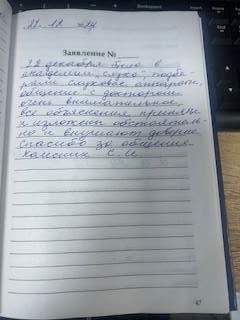 22.12.24
Заявление №
22 декабря была в
академии "слуха", подби-
рали слуховые аппараты,
общение с доктором
очень внимательное,
все объяснения
и изложены обстоятель-
но и внушают доверие
Спасибо за общение.
С. И.
47